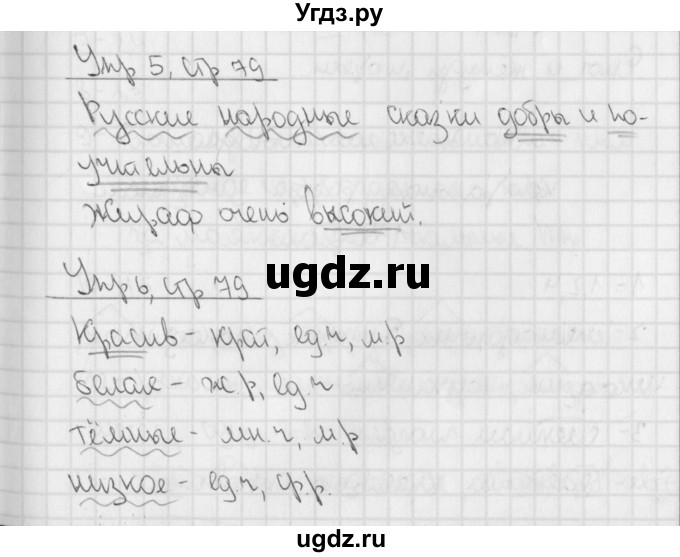 Угдз.ру
Упр 5, стр 79
Русские народные сказки добры и по-
учительны
Жираф очень высокий.
ugdz.ru
Упр 6, стр 79
Красив – крат, ед.ч, м.р
белая – ж.р, ед.ч
тёмные – мн.ч, м.р
низкое – ед.ч, ср.р.
ugdz.ru